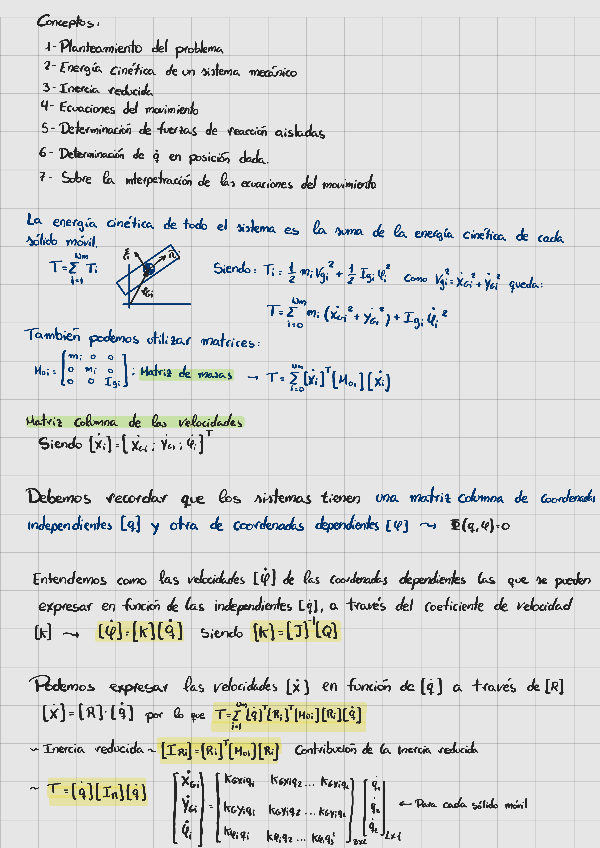 Conceptos:
1- Planteamiento del problema
2- Energía cinética de un sistema mecánico
3- Inercia reducida
4- Ecuaciones del movimiento
5- Determinación de fuerzas de reacción aisladas
6- Determinación de q̈ en posición dada.
7- Sobre la interpetración de las ecuaciones del movimiento
La energía cinética de todo el sistema es la suma de la energía cinética de cada
sólido móvil.
T = Σ Ti
Siendo: Ti = 1/2 mi Vgi² + 1/2 Igi φ̇i² como Vgi² = ẋGi² + ẏGi² queda:
T = Σ mi (ẋGi² + ẏGi²) + Igi φ̇i²
También podemos utilizar matrices:
M0i = [mi 0 0; 0 mi 0; 0 0 Igi] : Matriz de masas → T = Σ [ẋi]ᵀ [M0i] [ẋi]
Matriz columna de las velocidades
Siendo [ẋi] = [ẋGi ; ẏGi ; φ̇i]ᵀ
Debemos recordar que los sistemas tienen una matriz columna de coordenadas
independientes [q] y otra de coordenadas dependientes [φ] ⇝ Φ(q,φ)=0
Entendemos como las velocidades [φ̇] de las coordenadas dependientes las que se pueden
expresar en función de las independientes [q̇], a través del coeficiente de velocidad
[k] → [φ̇] = [k][q̇] Siendo [k] = [J]⁻¹[Q]
Podemos expresar las velocidades [ẋ] en función de [q̇] a través de [R]
[ẋ] = [R]·[q̇] por lo que T = Σ [q̇]ᵀ[Ri]ᵀ[M0i][Ri][q̇]
~ Inercia reducida ~ [IRi] = [Ri]ᵀ[M0i][Ri] Contribución de la inercia reducida
~ T = [q̇][In][q̇]
← Para cada sólido móvil